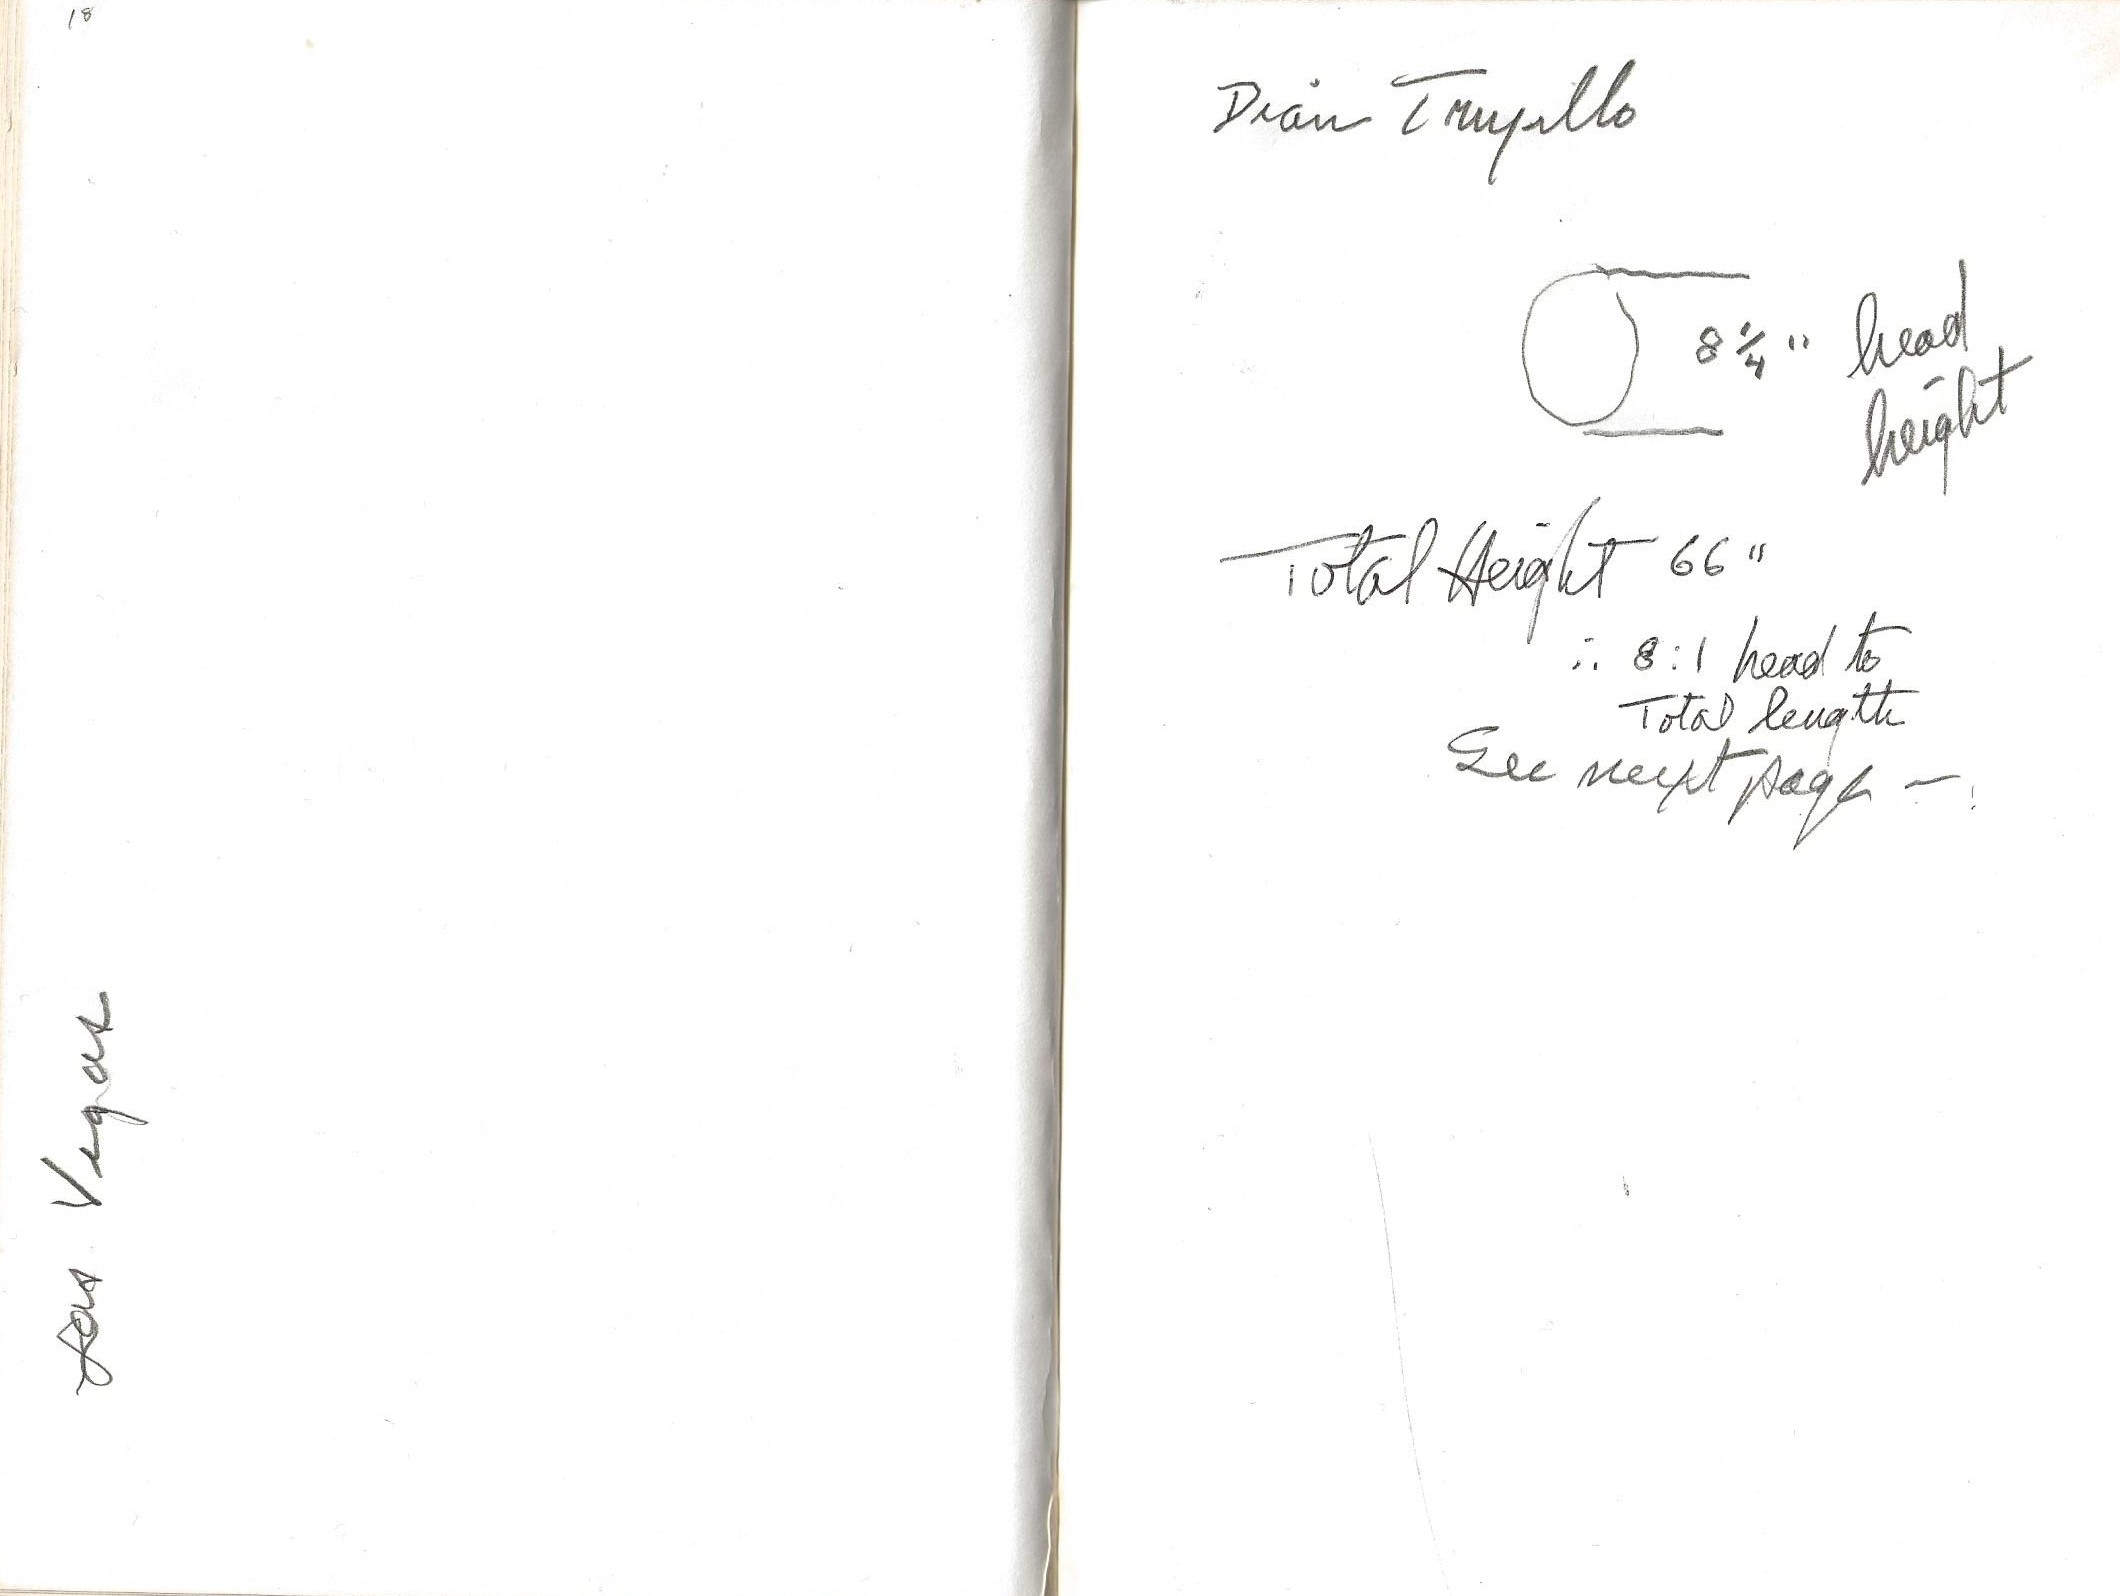 18
Las Vegas
Dian Trujillo
8 1/4 " head
height
Total Height 66 "
∴ 8:1 head to
Total length
See next page —